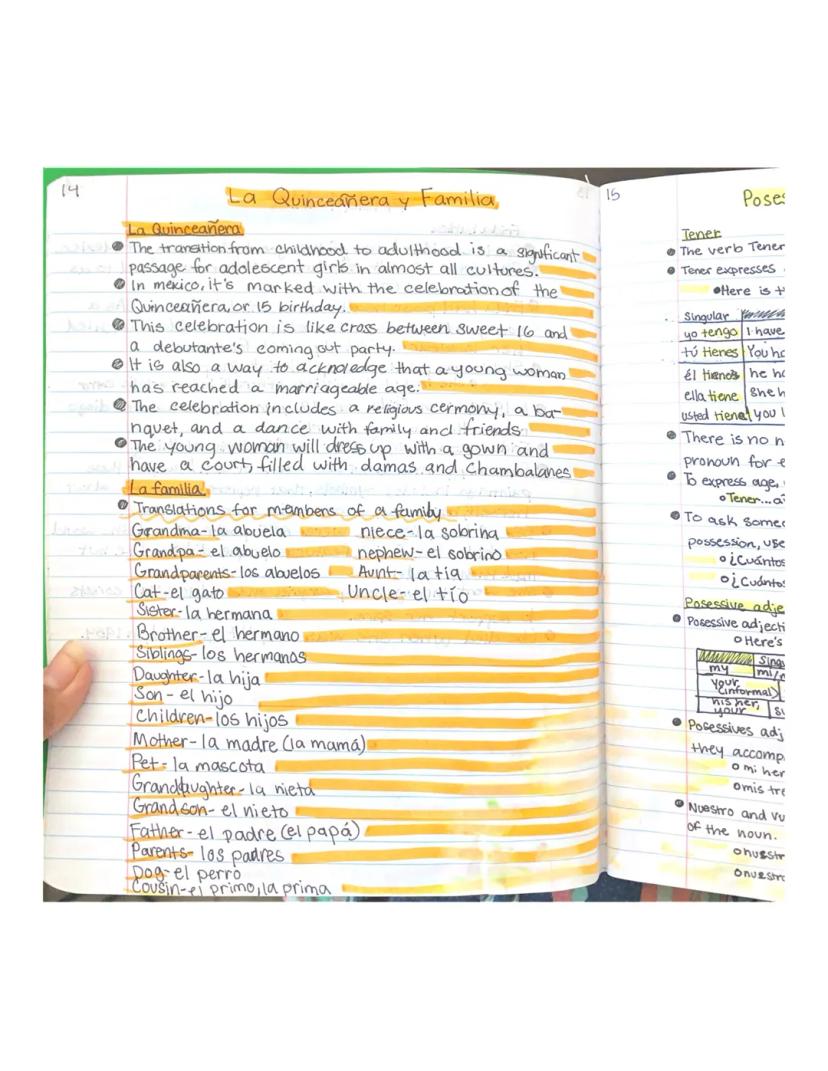 14
La Quinceañera y Familia
La Quinceañera
The transition from childhood to adulthood is a significant
passage for adolescent girls in almost all cultures.
In mexico, it's marked with the celebration of the
Quinceañera, or 15 birthday.
This celebration is like cross between sweet 16 and
a debutante's coming out party.
It is also a way to acknoledge that a young woman
has reached a marriageable age.
The celebration includes a religious cermony, a ba-
nquet, and a dance with family and friends
The young woman will dress up with a gown and
have a court, filled with damas and Chambalanes
La familia
Translations for members of a family
Grandma- la abuela niece- la sobrina
Grandpa- el abuelo nephew- el sobrino
Grandparents- los abuelos Aunt- la tia
Cat- el gato Uncle- el tío
Sister- la hermana
Brother- el hermano
Siblings- los hermanos
Daughter- la hija
Son- el hijo
Children- los hijos
Mother- la madre (la mamá)
Pet- la mascota
Granddaughter- la nieta
Grandson- el nieto
Father- el padre (el papá)
Parents- los padres
Dog- el perro
Cousin- el primo, la prima
15
Poses
Tener
The verb Tener
Tener expresses
Here is
Singular
yo tengo I have
tú tienes You ha
él tiene he ha
ella tiene she h
usted tiene you
There is no n
pronoun for e
To express age,
Tener...a
To ask some
possession, use
¿Cuántos
¿Cuántos
Posessive adje
Posessive adjecti
Here's
Singu
my mi/m
your (informal)
his, her, your su
Posessives adj
they accomp
mi her
mis tre
Nuestro and vu
of the noun.
nuestr
nuestro